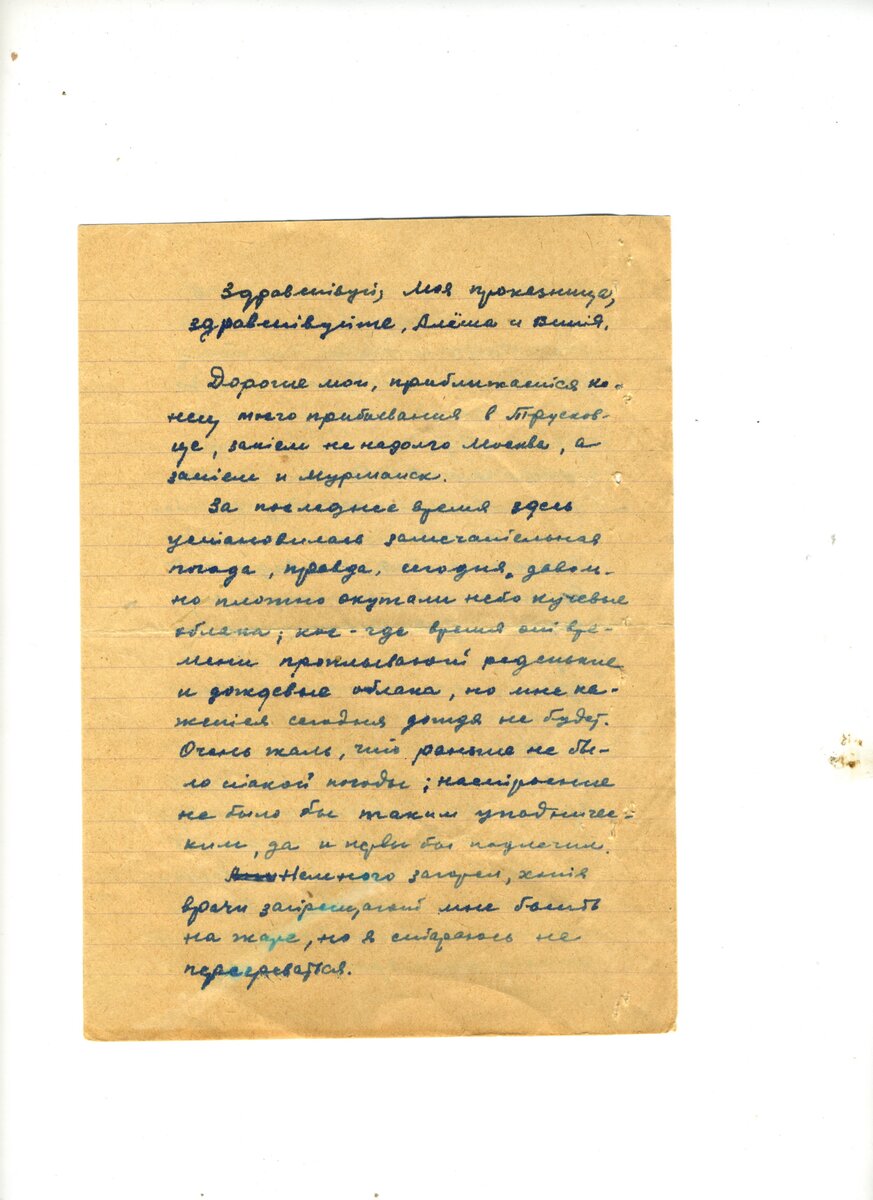 Здравствуй, моя проказница,
здравствуйте, Алёша и Витя.
Дорогие мои, приближается ко-
нец моего прибывания в Трусков-
це, затем не надолго Москва, а
затем и Мурманск.
За последнее время здесь
установилась замечательная
погода, правда, сегодня доволь-
но плотно окутали небо кучевые
облака; кое-где время от вре-
мени проплывают реденькие
и дождевые облака, но мне ка-
жется сегодня дождя не будет.
Очень жаль, что раньше не бы-
ло такой погоды; настроение
не было бы таким упадничес-
ким, да и нервы бы подлечил.
Немного загорел, хотя
врачи запрещают мне бывать
на жаре, но я стараюсь не
перегреваться.